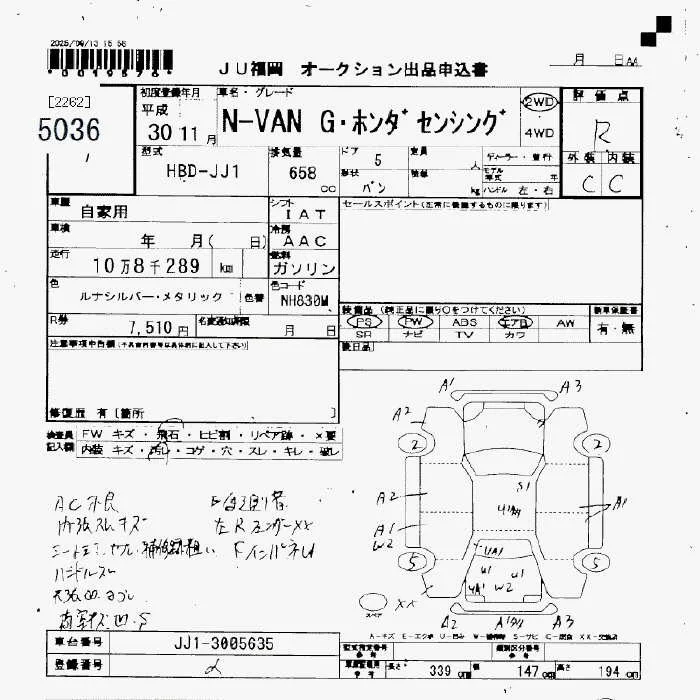 2025/09/13 15 56
*0019576*
JU福岡 オークション出品申込書
月 日
[2262]
5036
初度登録年月
平成
30 11月
車名・グレード
N-VAN G・ホンダ センシング
2WD
4WD
評価点
R
外装 内装
C C
型式
HBD-JJ1
排気量
658 cc
ドア 5
形状 バン
定員 人
積載 kg
ディーラー・並行
モデル年式 年
ハンドル 左・右
車歴 自家用
シフト IAT
車検 年 月( 日)
冷房 AAC
走行 10万8千289 km
燃料 ガソリン
色 ルナシルバー・メタリック 色替
色コード NH830M
R券 7,510円
名変通知期限 月 日
セールスポイント(正常に機能するものに限ります)
装備品 (純正品に限り○をつけてください)
PS PW ABS エアB AW
SR ナビ TV カワ
新車保証書
有・無
後日品
注意事項申告欄(不具合内容等は具体的に記入して下さい)
修復歴 有 [箇所 ]
検査員記入欄
FW キズ・飛石・ヒビ割・リペア跡・×要
内装 キズ・汚レ・コゲ・穴・スレ・キレ・破レ
AC外良
内張スレキズ
ハンドルスレ
A1 A3
A2 A2
2 2
S1
A2 A1
A1
W2
5 5
U1 U1
W2
スペア
XX
A2 A3
A-キズ E-エクボ U-凹み W-補修跡 S-サビ C-腐食 XX-交換済
車台番号 JJ1-3005635
登録番号
型式指定番号 参考
類別区分番号 参考
長さ 339 cm 幅 147 cm 高さ 194 cm